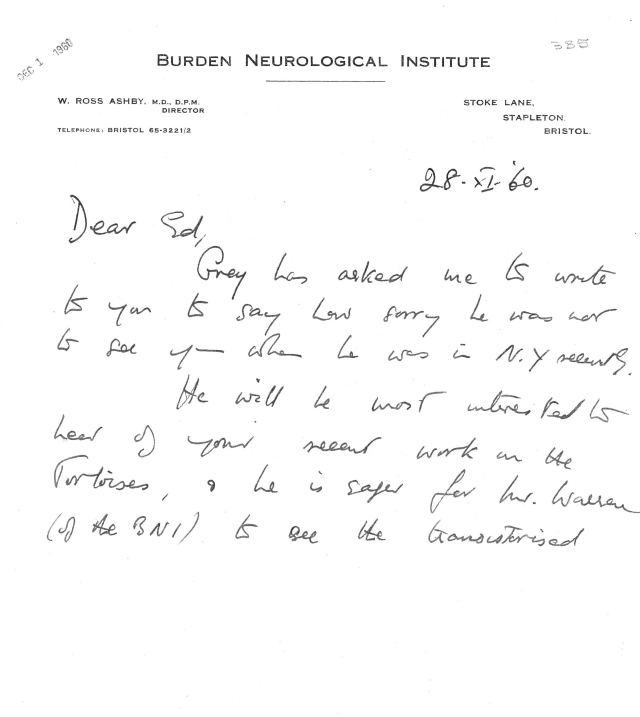 DEC 1 1960
385
BURDEN NEUROLOGICAL INSTITUTE
W. ROSS ASHBY, M.D., D.P.M.
DIRECTOR
TELEPHONE: BRISTOL 65-3221/2
STOKE LANE,
STAPLETON.
BRISTOL.
28·XI·'60.
Dear Ed,
Grey has asked me to write
to you to say how sorry he was not
to see you when he was in N.Y recently.
He will be most interested to
hear of your recent work on the
Tortoises, & he is eager for Mr. Warren
(of the BNI) to see the transistorised